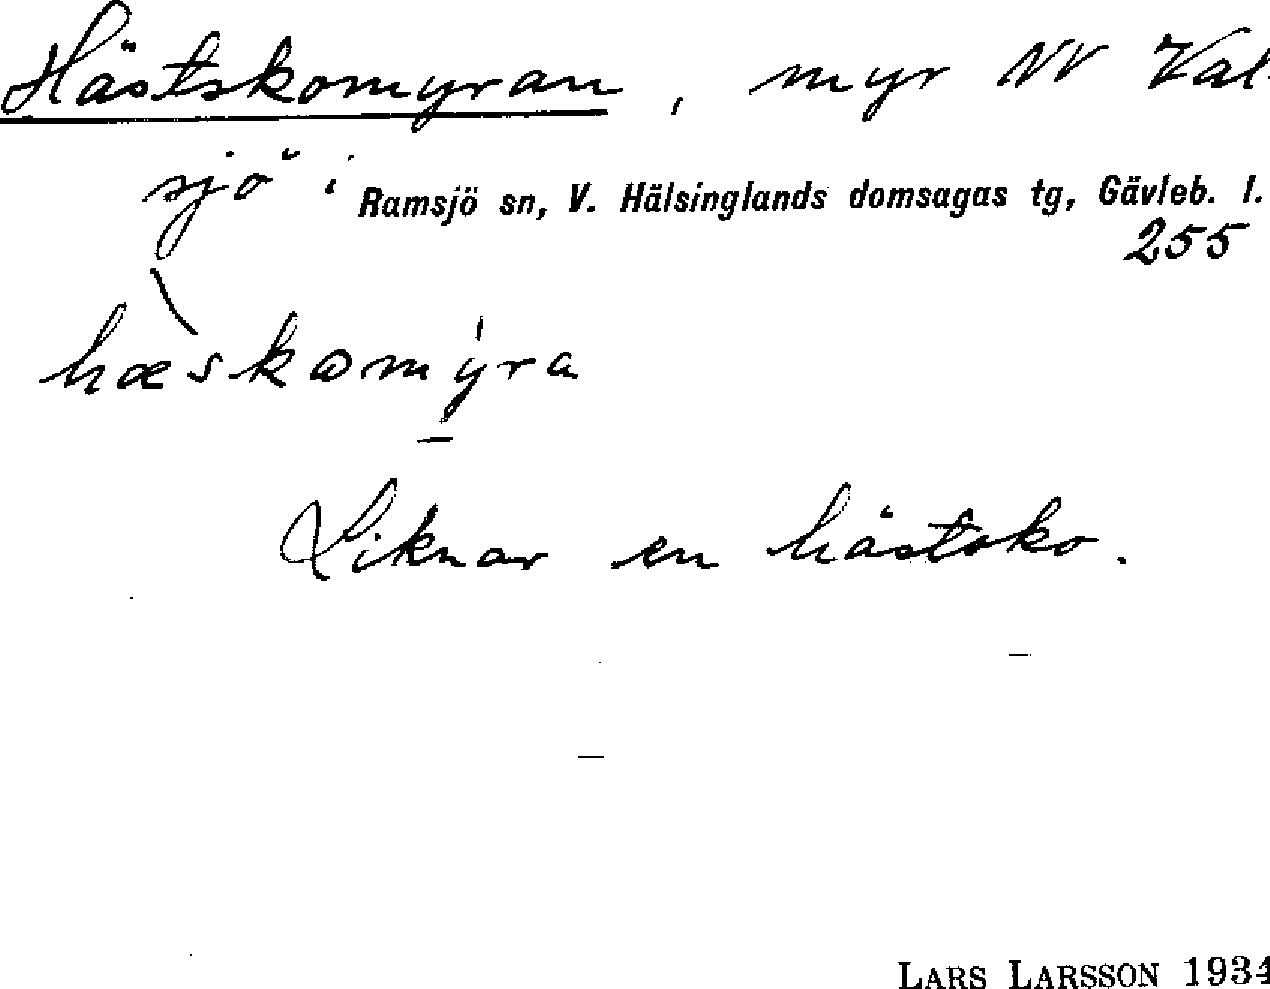 Hästskomyran, myr NV Val-
sjö i Ramsjö sn, V. Hälsinglands domsagas tg, Gävleb. l.
255
hæskomýra
Liknar en hästsko.
LARS LARSSON 1934